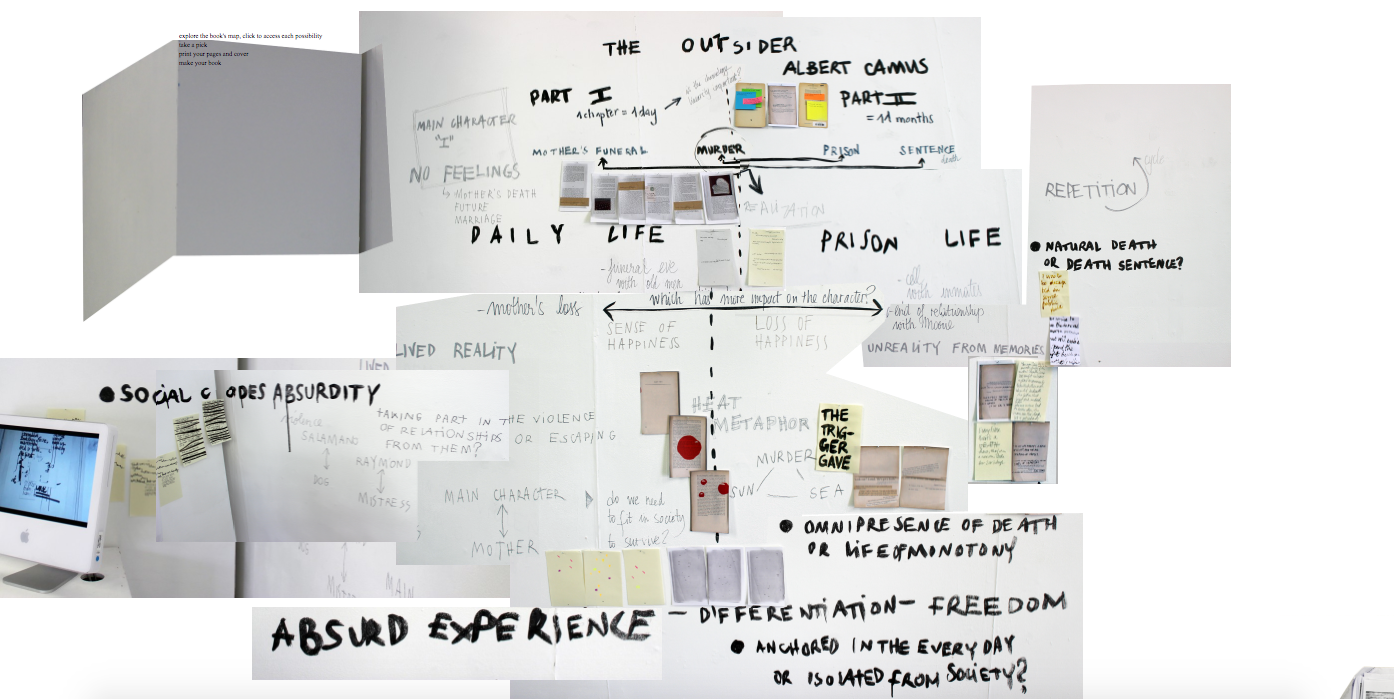 explore the book's map, click to access each possibility
take a pick
print your pages and cover
make your book
THE OUTSIDER
ALBERT CAMUS
PART I
1 chapter = 1 day
PART II
= 11 months
MAIN CHARACTER
"I"
NO FEELINGS
MOTHER'S DEATH
FUTURE
MARRIAGE
MOTHER'S FUNERAL
MURDER
PRISON
SENTENCE
death
DAILY LIFE
PRISON LIFE
- funeral eve
with old men
- cell
with inmates
REPETITION
cycle
NATURAL DEATH
OR DEATH SENTENCE?
which has more impact on the character?
- mother's loss
SENSE OF
HAPPINESS
LOSS OF
HAPPINESS
- end of relationship
with
LIVED REALITY
UNREALITY FROM MEMORIES
LIVED
SOCIAL CODES ABSURDITY
violence
SALAMANO
DOG
RAYMOND
MISTRESS
TAKING PART IN THE VIOLENCE
OF RELATIONSHIPS OR ESCAPING
FROM THEM?
HEAT
METAPHOR
THE
TRIG-
GER
GAVE
MURDER
SUN
SEA
MAIN CHARACTER
MOTHER
do we need
to fit in society
to survive?
MAIN
OMNIPRESENCE OF DEATH
OR LIFE OF MONOTONY
ABSURD EXPERIENCE — DIFFERENTIATION — FREEDOM
ANCHORED IN THE EVERYDAY
OR ISOLATED FROM SOCIETY?